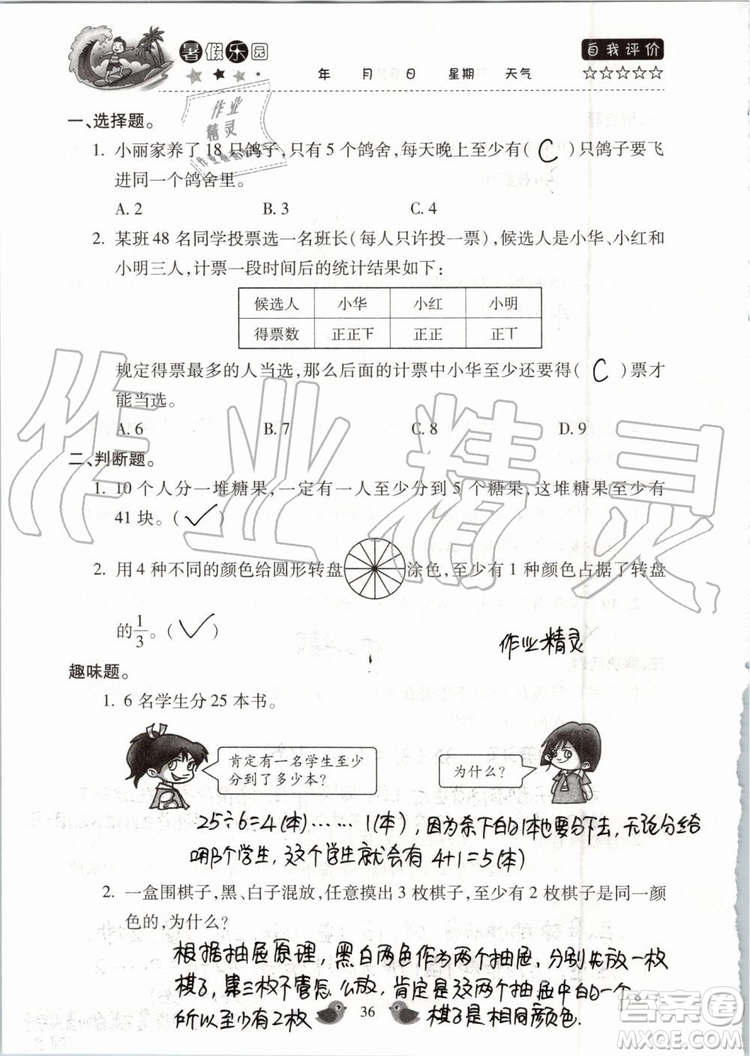 暑假乐园
年 月 日 星期 天气
自我评价
☆☆☆☆☆
一、选择题。
1. 小丽家养了 18 只鸽子,只有 5 个鸽舍,每天晚上至少有( C )只鸽子要飞
进同一个鸽舍里。
A. 2 B. 3 C. 4
2. 某班 48 名同学投票选一名班长(每人只许投一票),候选人是小华、小红和
小明三人,计票一段时间后的统计结果如下:
候选人 小华 小红 小明
得票数 正正下 正正 正丅
规定得票最多的人当选,那么后面的计票中小华至少还要得( C )票才
能当选。
A. 6 B. 7 C. 8 D. 9
二、判断题。
1. 10 个人分一堆糖果,若有一人至少分到 5 个糖果,这堆糖果至少有
41 块。( ✓ )
2. 用 4 种不同的颜色给圆形转盘涂色,至少有 1 种颜色占据了转盘
的1/3。( ✓ )
作业精灵
趣味题。
1. 6 名学生分 25 本书。
肯定有一名学生至少
分到了多少本?
为什么?
25÷6=4(本)……1(本),因为余下的1本也要分下去,无论分给
哪个学生,这个学生就会有 4+1=5(本)
2. 一盒围棋子,黑、白子混放,任意摸出 3 枚棋子,至少有 2 枚棋子是同一颜
色的,为什么?
根据抽屉原理,黑白两色作为两个抽屉,分别先放一枚
棋子,第三枚不管怎么放,肯定是两个抽屉中的一个
所以至少有2枚棋子是相同颜色.
36
作业精灵
作业精灵
答案圈
MXQE.COM